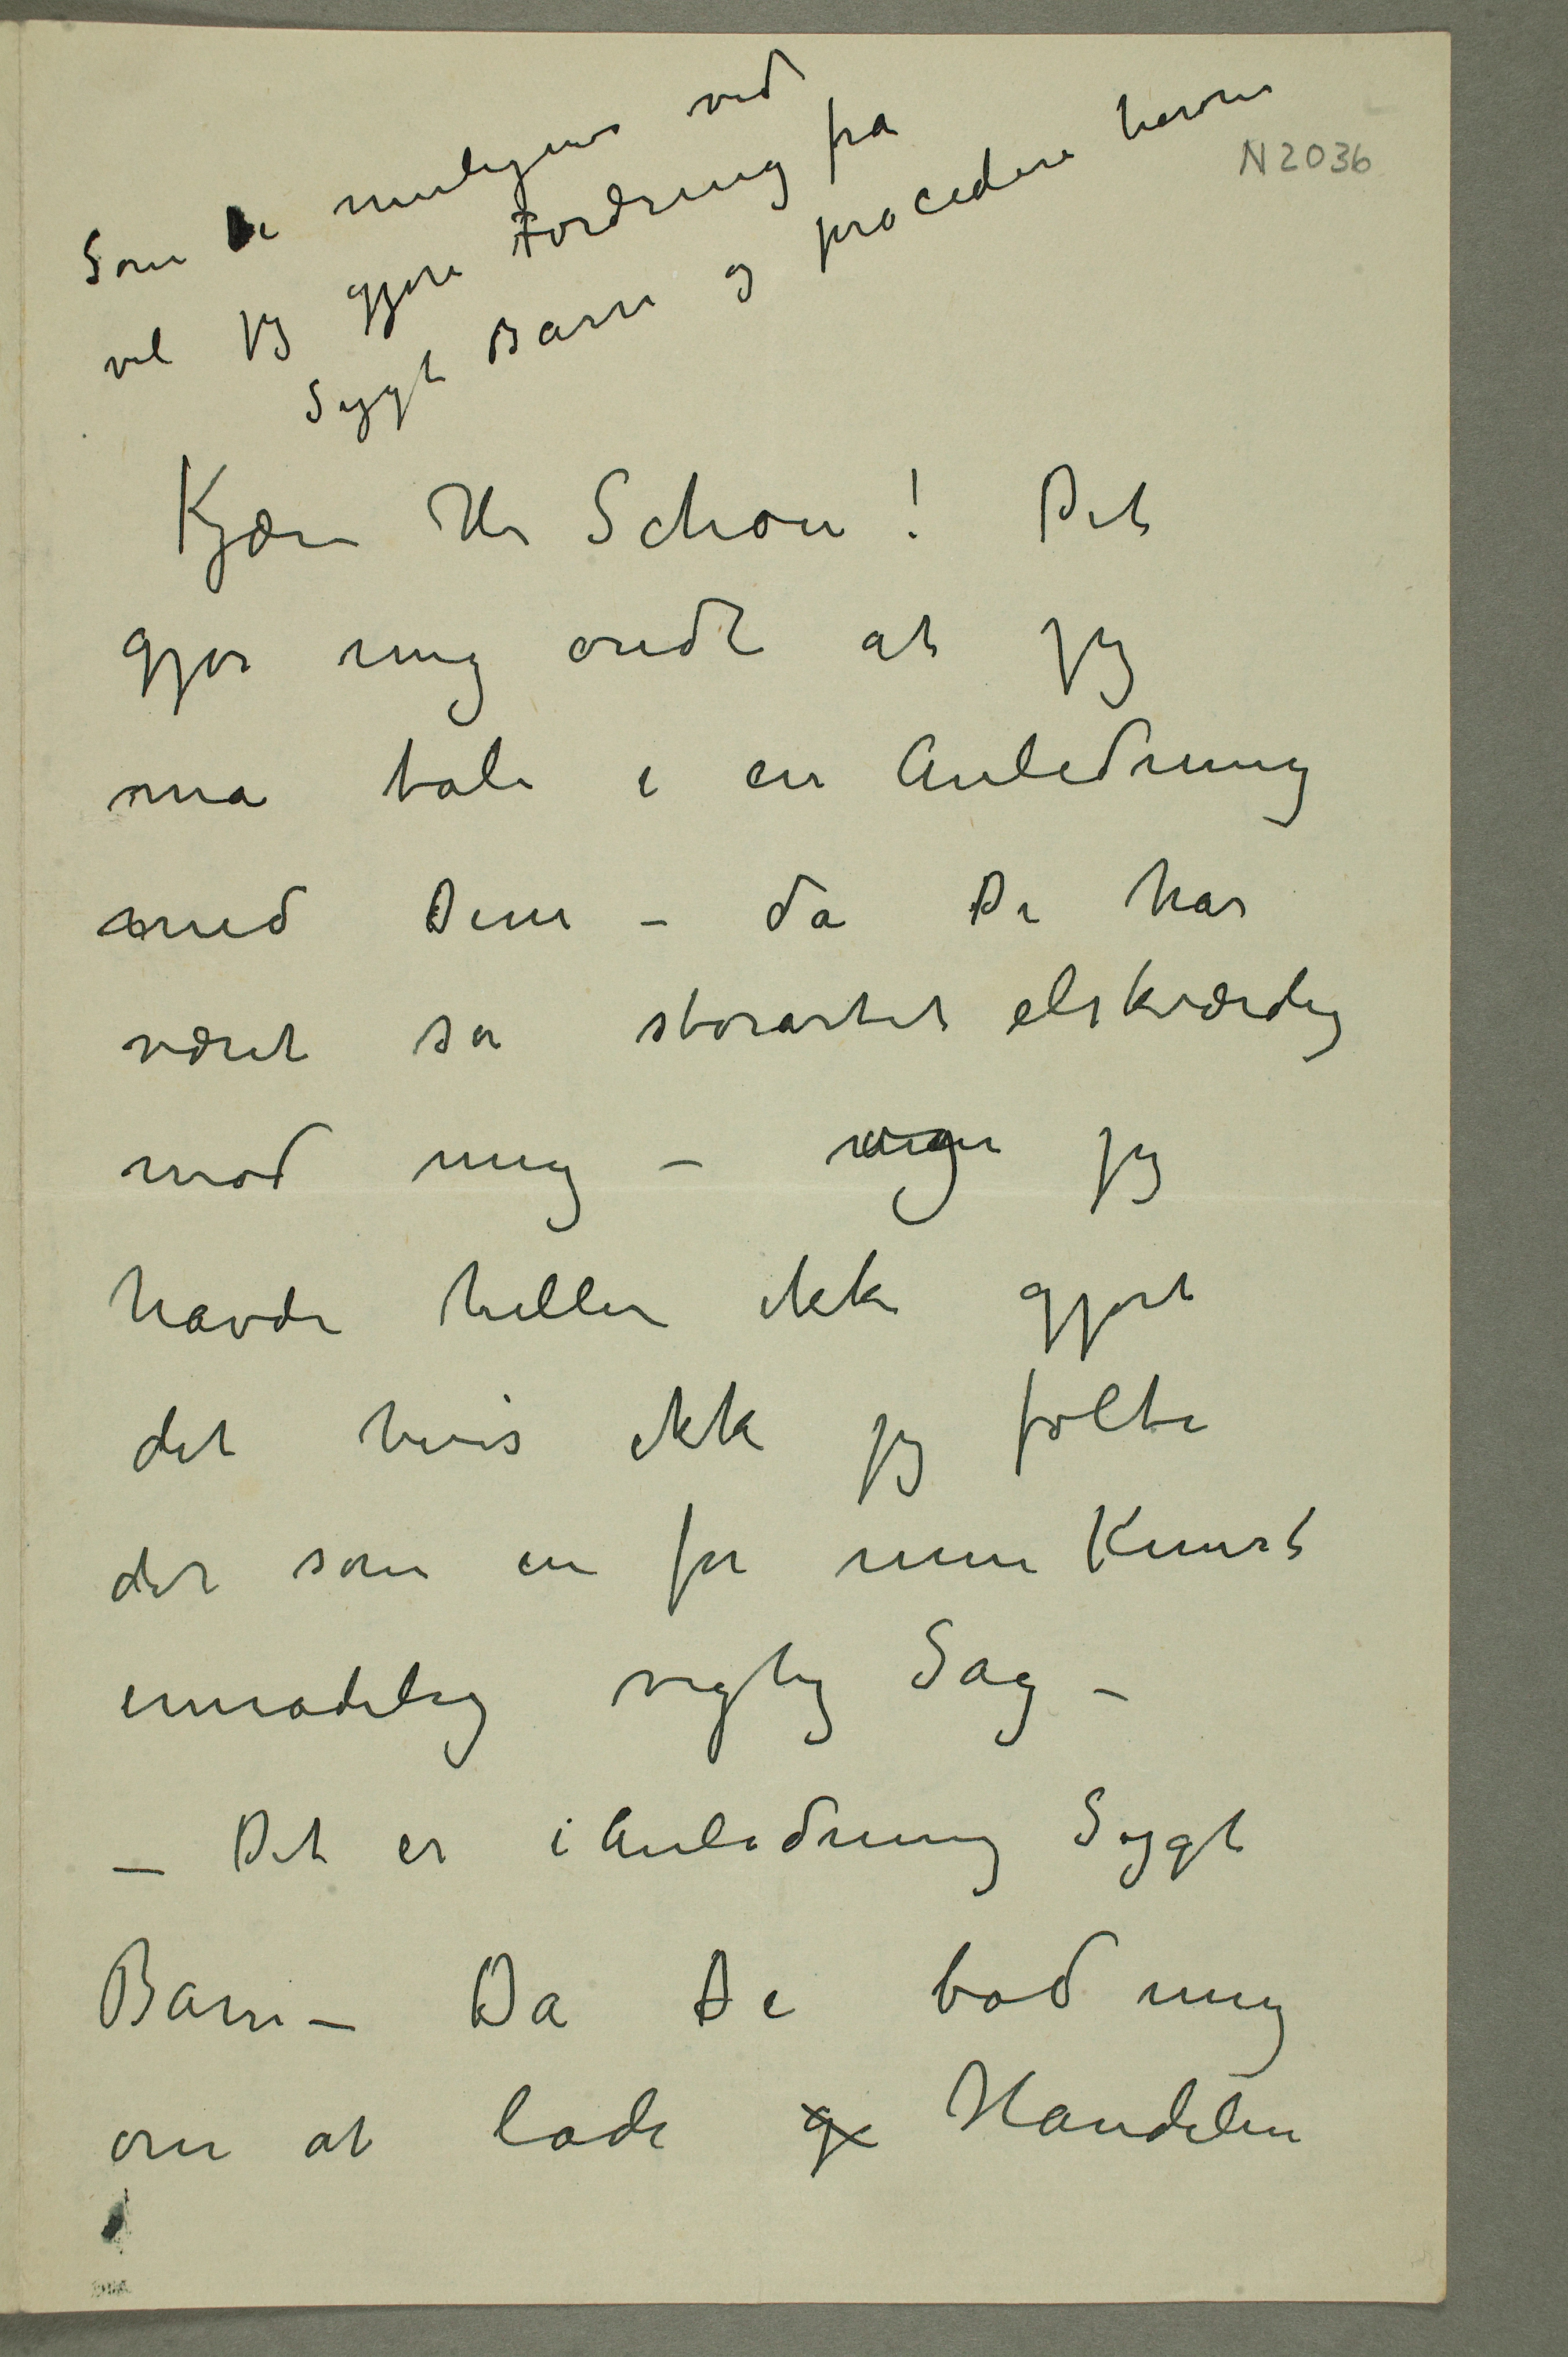 Som De muligens ved
vil jeg gjøre Fordring fra
N 2036
Sygt Barn og procedere herom
Kjære Hr Schou! Det
gjør mig ondt at jeg
må tale i en Anledning
med Dem – da De har
været så storartet elskværdig
mod mig – jeg
havde heller ikke gjort
det hvis ikke jeg følte
det som en for min Kunst
umådelig vigtig Sag –
– Det er i Anledning Sygt
Barn – Da De bad mig
om at lade g Handelen